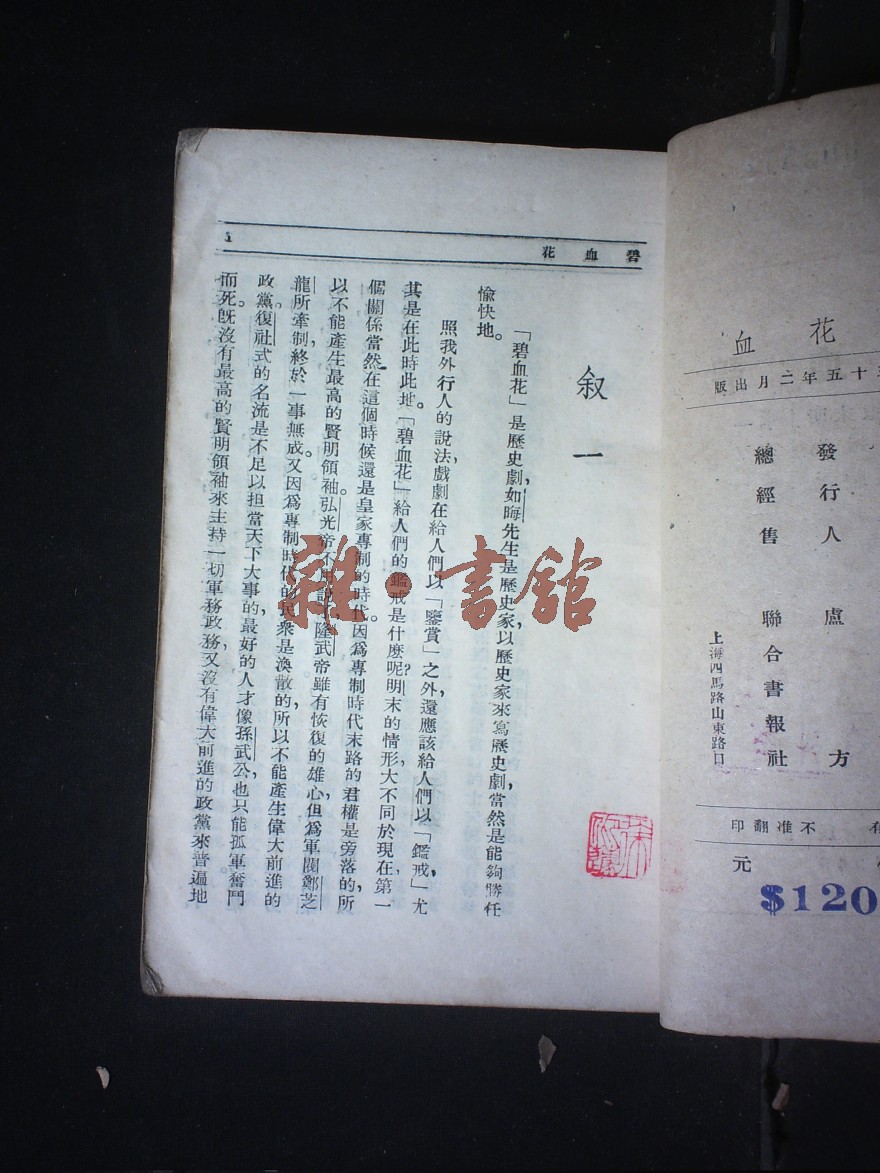 碧血花
1
叙一
「碧血花」是歷史劇，如晦先生是歷史家，以歷史家來寫歷史劇，當然是能夠勝任
愉快地。
照我外行人的說法，戲劇在給人們以「鑒賞」之外，還應該給人們以「鑑戒，」尤
其是在此時此地。「碧血花」給人們的鑑戒是什麽呢？明末的情形，大不同於現在，第一
個關係，當然在這個時候還是皇家專制的時代。因爲專制時代末路的君權是旁落的，所
以不能產生最高的賢明領袖。弘光帝不用說，隆武帝雖有恢復的雄心，但爲軍閥鄭芝
龍所牽制，終於一事無成。又因爲專制時代的民衆是渙散的，所以不能產生偉大前進的
政黨。復社式的名流是不足以担當天下大事的，最好的人才像孫武公，也只能孤軍奮鬥
而死。旣沒有最高的賢明領袖來主持一切軍務政務，又沒有偉大前進的政黨來普遍地
雜·書館
花血
十五年二月出版
發行人 盧 方
總經售 聯合書報社
上海四馬路山東路口
不准翻印
元
$120